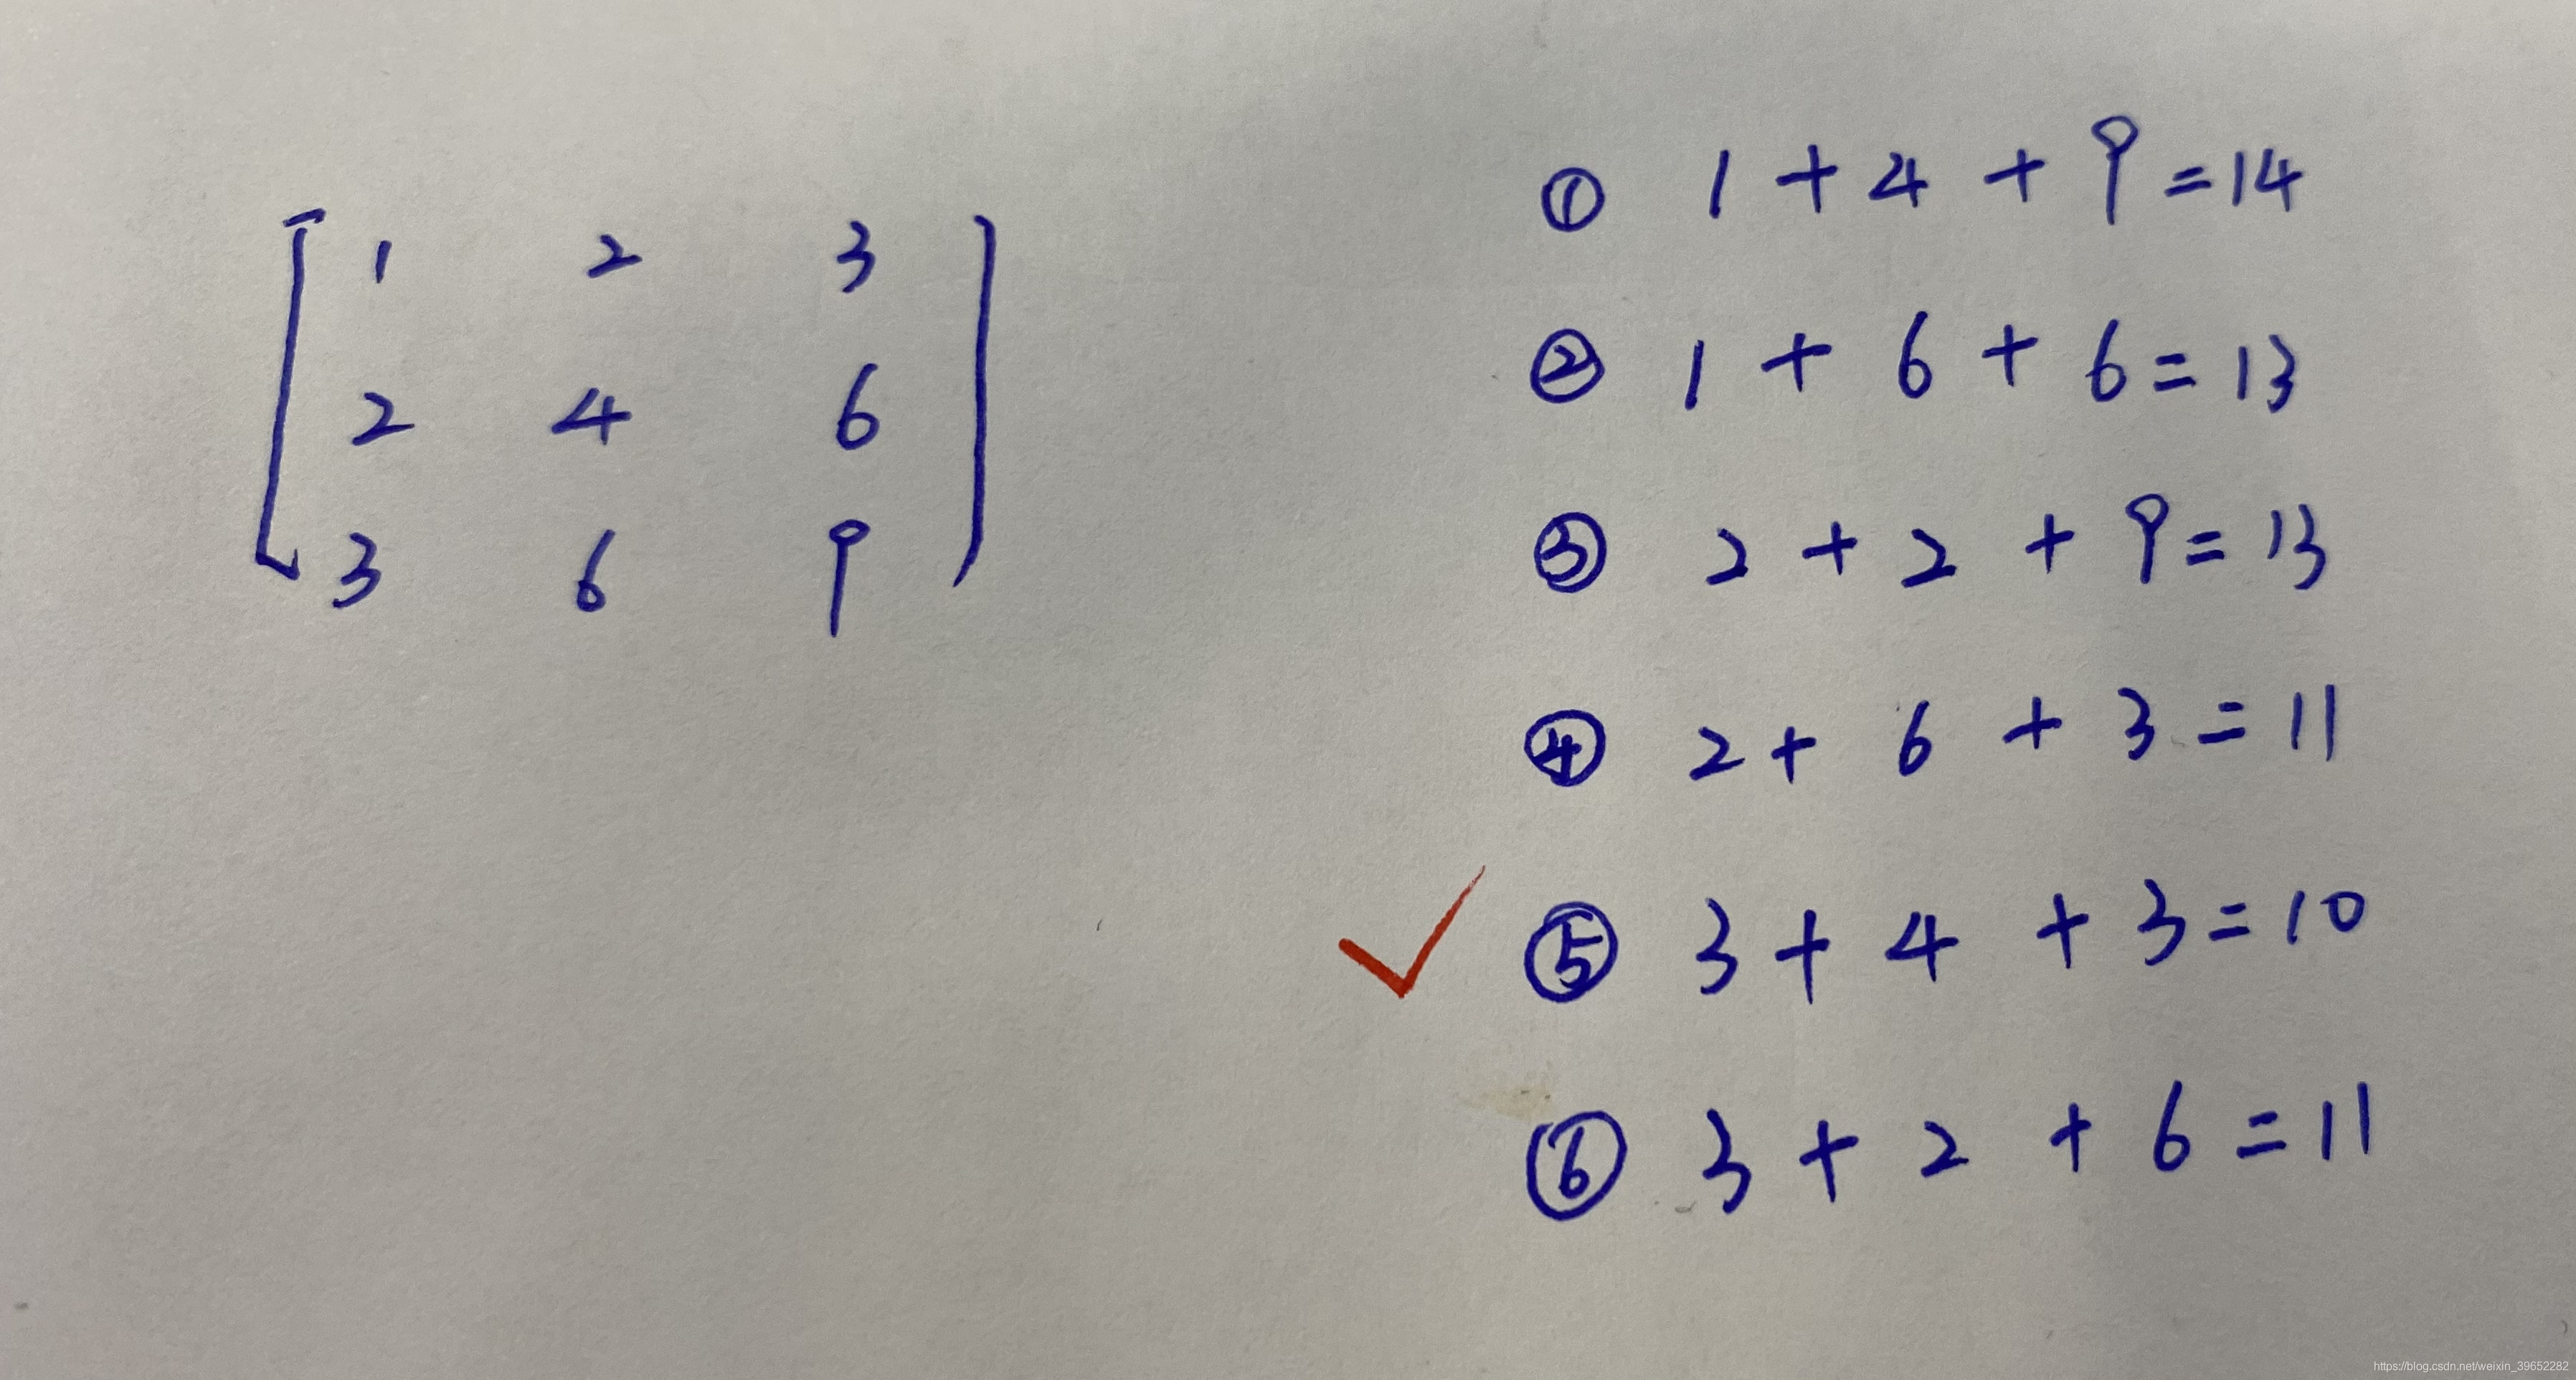 1 2 3
2 4 6
3 6 9
① 1 + 4 + 9 = 14
② 1 + 6 + 6 = 13
③ 2 + 2 + 9 = 13
④ 2 + 6 + 3 = 11
⑤ 3 + 4 + 3 = 10
⑥ 3 + 2 + 6 = 11
https://blog.csdn.net/weixin_39652282